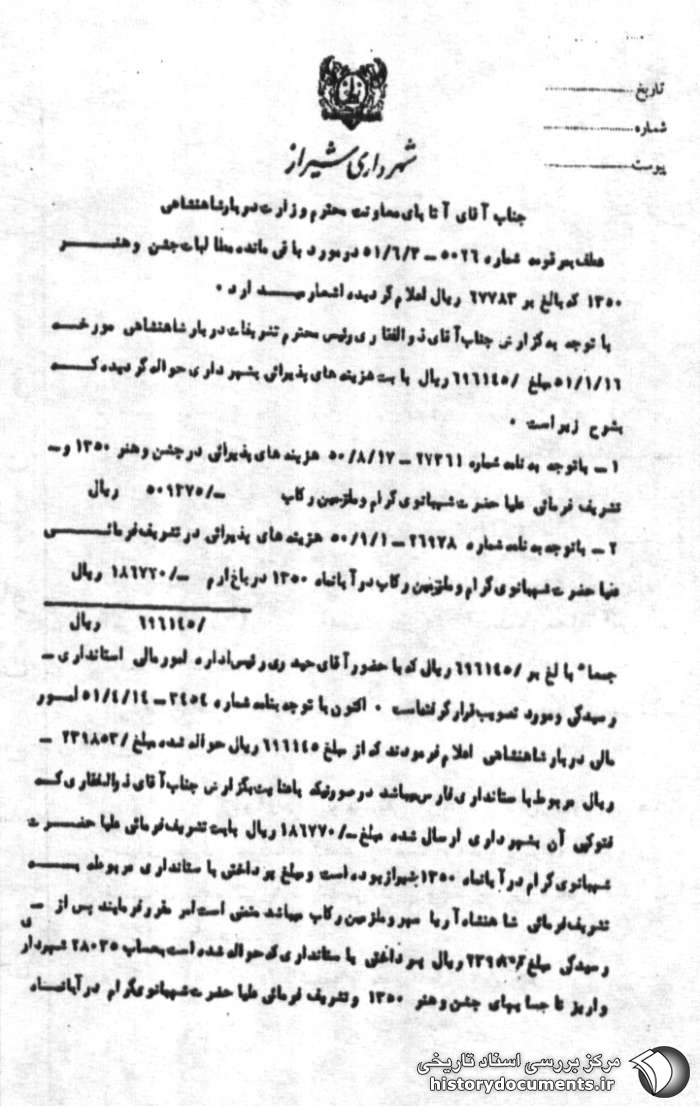 تاریخ
شماره
پیوست
شهرداری شیراز
جناب آقای آتابای معاونت محترم وزارت دربار شاهنشاهی
عطف بمرقومه شماره ۵۰۲۶ ــ ۵۱/۶/۲ در مورد باقی مانده مطالبات جشن و هنر
۱۳۵۰ که بالغ بر ۶۷۷۸۳ ریال اعلام گردیده اشعار میدارد .
با توجه به گزارش جناب آقای ذوالفقاری رئیس محترم تشریفات دربار شاهنشاهی مورخه
۵۱/۱/۱۶ مبلغ /۶۹۶۱۴۵ ریال بابت هزینه های پذیرائی بشهرداری حواله گردیده که
بشرح زیر است .
۱ ــ باتوجه به نامه شماره ۲۷۳۶۱ ــ ۵۰/۸/۱۷ هزینه های پذیرائی در جشن و هنر ۱۳۵۰ و ــ
تشریف فرمائی علیا حضرت شهبانوی گرام و ملتزمین رکاب ــ/۵۰۹۳۷۵ ریال
۲ ــ باتوجه به نامه شماره ۲۶۹۲۸ ــ ۵۰/۹/۱ هزینه های پذیرائی در تشریف فرمائی
علیا حضرت شهبانوی گرام و ملتزمین رکاب در آبانماه ۱۳۵۰ در باغ ارم ــ/۱۸۶۷۷۰ ریال
/۶۹۶۱۴۵ ریال
جمعا" بالغ بر /۶۹۶۱۴۵ ریال که با حضور آقای حیدری رئیس اداره امور مالی استانداری ــ
رسیدگی و مورد تصویب قرار گرفته است . اکنون با توجه بنامه شماره ۳۴۵۴ ــ ۵۱/۴/۱۴ امور
مالی دربار شاهنشاهی اعلام فرمودند که از مبلغ ۶۹۶۱۴۵ ریال حواله شده مبلغ /۲۳۹۸۵۳ ــ
ریال مربوط باستانداری فارس میباشد در صورتیکه باعنایت بگزارش جناب آقای ذوالفقاری که
فتوکپی آن بشهرداری ارسال شده مبلغ ــ/۱۸۶۷۷۰ ریال بابت تشریف فرمائی علیا حضرت
شهبانوی گرام در آبانماه ۱۳۵۰ بشیراز بوده است و مبلغ پرداختی باستانداری مربوطه به
تشریف فرمائی شاهنشاه آریا مهر و ملتزمین رکاب میباشد متمنی است امر مقرر فرمایند پس از ــ
رسیدگی مبلغ ۲۳۹۸۵۳ ریال پرداختی باستانداری که حواله شده است بحساب ۲۸۰۳۵ شهرداری
واریز تا حسابهای جشن و هنر ۱۳۵۰ و تشریف فرمائی علیا حضرت شهبانوی گرام در آبانماه
مرکز بررسی اسناد تاریخی
historydocuments.ir